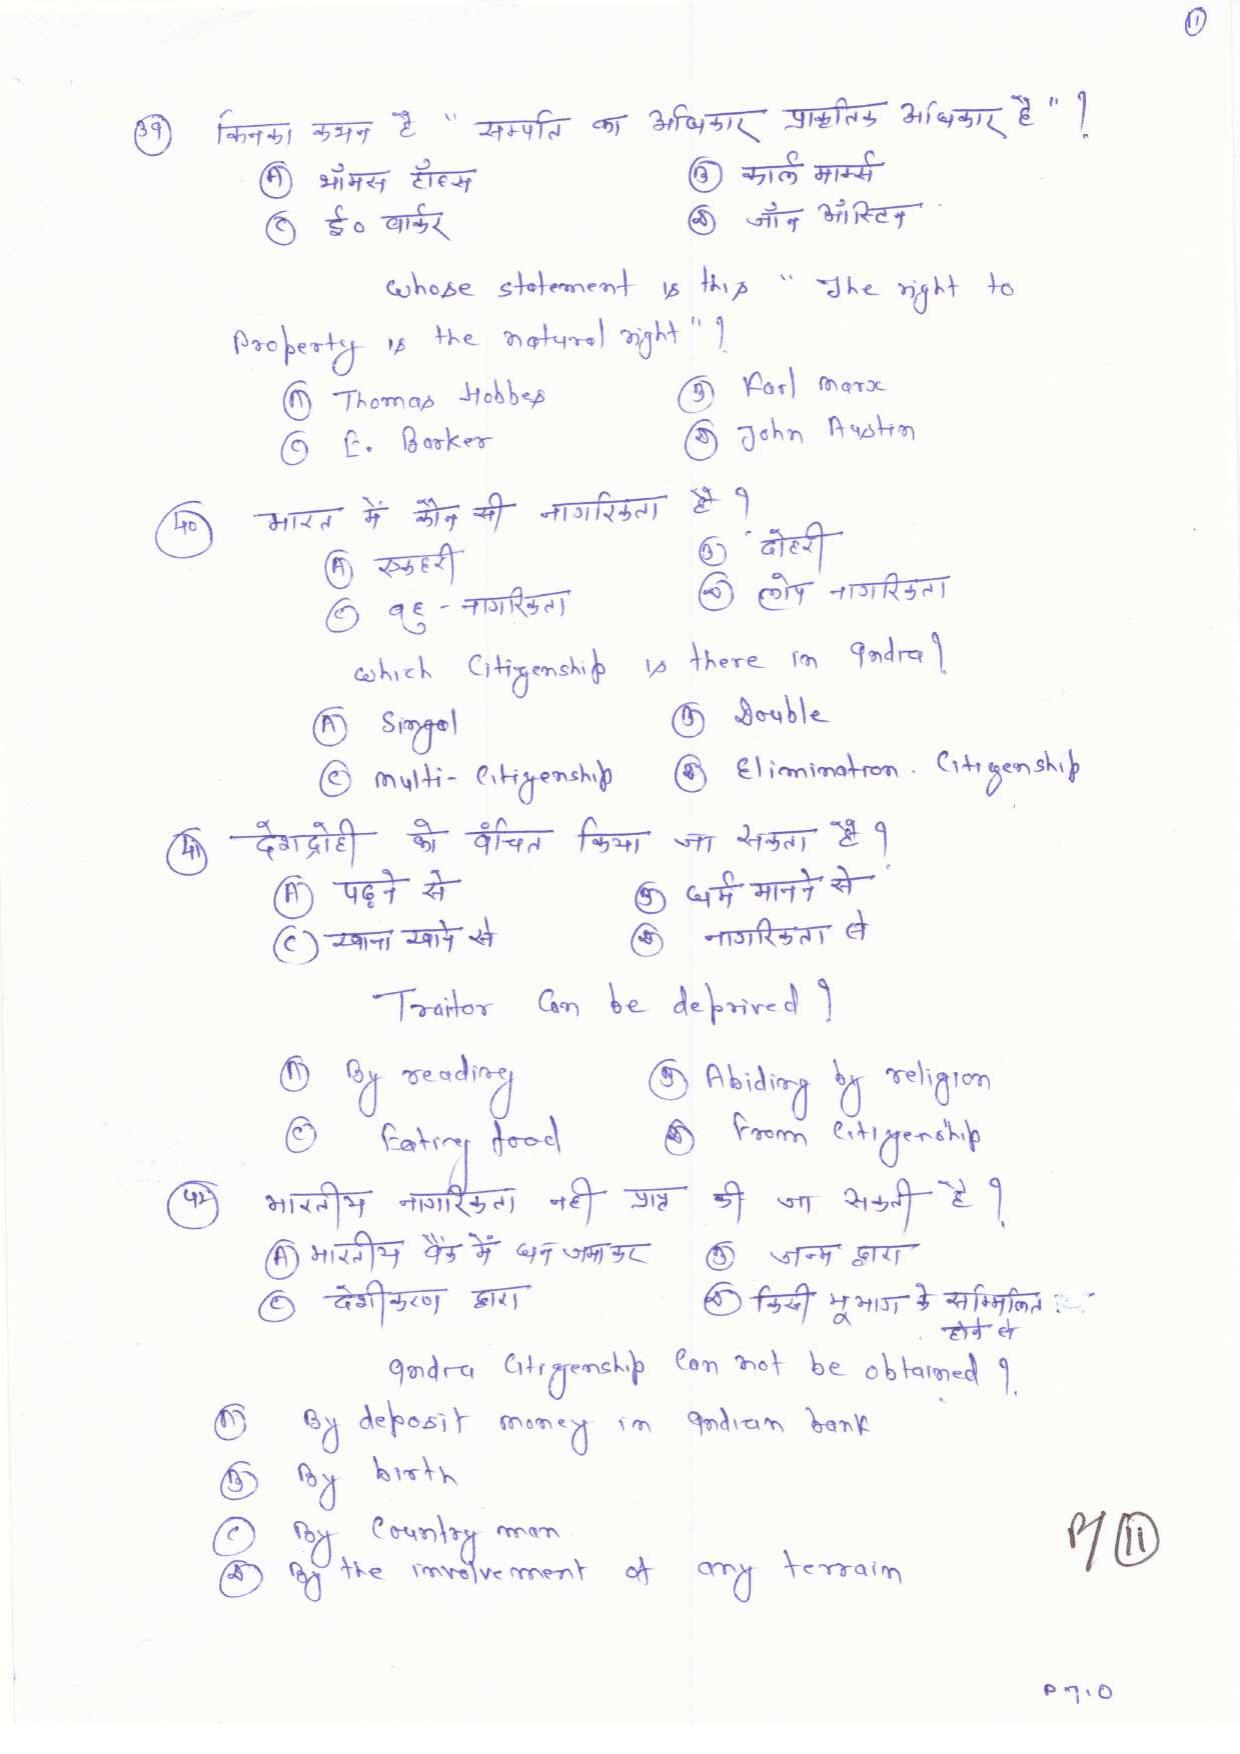 11
39 किनका कथन है " सम्पति का अधिकार प्राकृतिक अधिकार है " ?
A थॉमस हॉब्स B कार्ल मार्क्स
C ई० बार्कर D जॉन ऑस्टिन
Whose statement is this " The right to
Property is the natural right " ?
A Thomas Hobbes B Karl Marx
C E. Barker D John Austin
40 भारत में कौन सी नागरिकता है ?
A एकहरी B दोहरी
C बहु - नागरिकता D लोप नागरिकता
Which Citizenship is there in India ?
A Singol B Double
C Multi - Citizenship D Elimination. Citizenship
41 देशद्रोही को वंचित किया जा सकता है ?
A पढ़ने से B धर्म मानने से
C खाना खाने से D नागरिकता से
Traitor Can be deprived ?
A By reading B Abiding by religion
C Eating food D From Citizenship
42 भारतीय नागरिकता नही प्राप्त की जा सकती है ?
A भारतीय बैंक में धन जमाकर B जन्म द्वारा
C देशीकरण द्वारा D किसी भूभाग के सम्मिलित
होने से
India Citizenship Can not be obtained ?
A By deposit money in Indian bank
B By birth
C By Country man
D By the involvement of any terrain
P/11
P.T.O